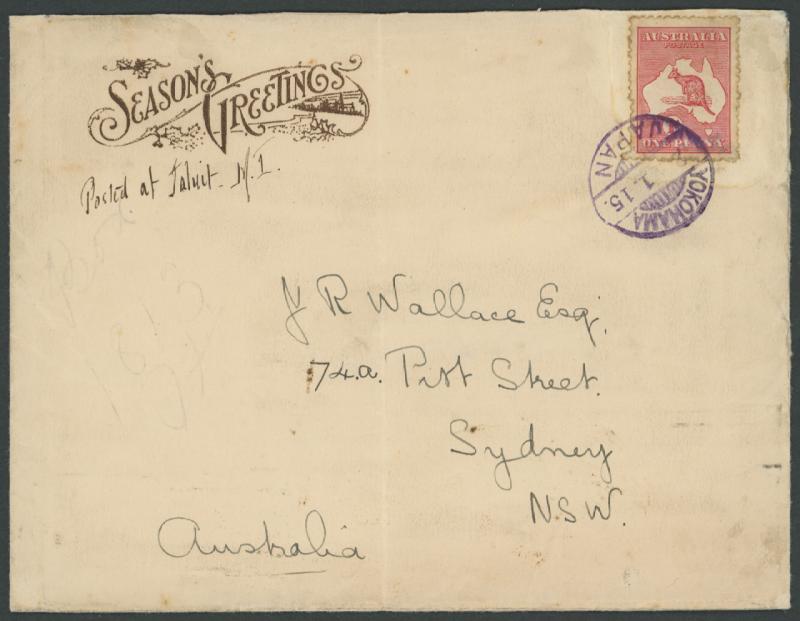 SEASON'S GREETINGS
AUSTRALIA
POSTAGE
ONE PENNY
Posted at Jaluit. M.I.
YOKOHAMA
1. 15.
JAPAN
J R Wallace Esq.
74.a. Pitt Street.
Sydney
NSW.
Australia